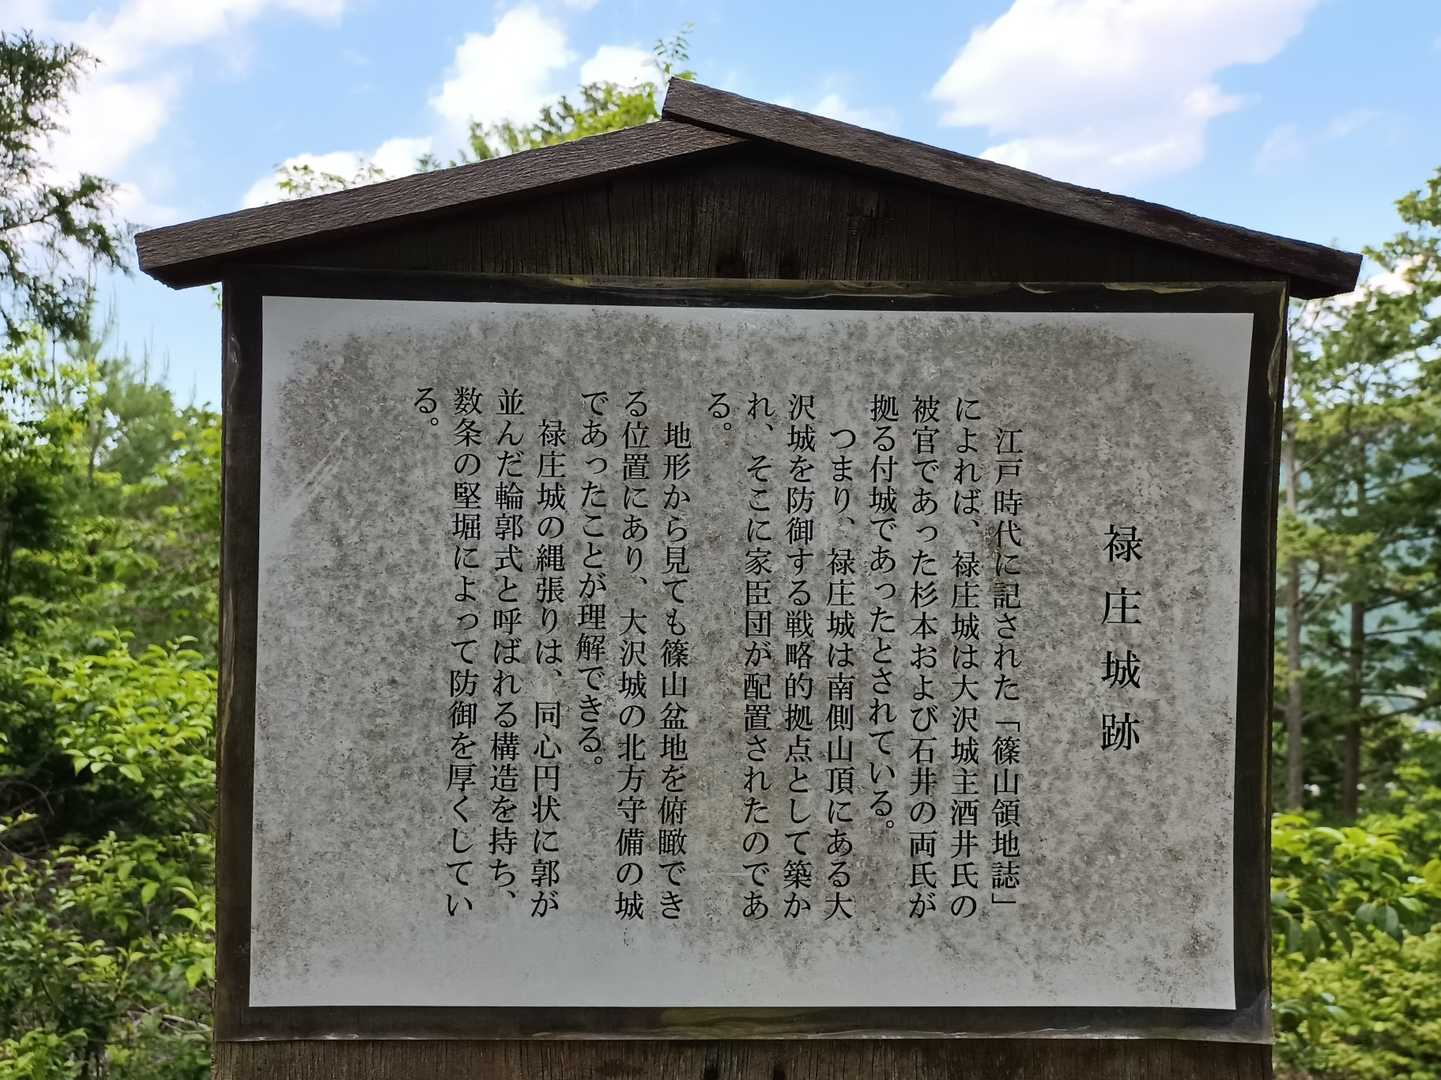 禄庄城跡
江戸時代に記された「篠山領地誌」
によれば、禄庄城は大沢城主酒井氏の
被官であった杉本および石井の両氏が
拠る付城であったとされている。
つまり、禄庄城は南側山頂にある大
沢城を防御する戦略的拠点として築か
れ、そこに家臣団が配置されたのであ
る。
地形から見ても篠山盆地を俯瞰でき
る位置にあり、大沢城の北方守備の城
であったことが理解できる。
禄庄城の縄張りは、同心円状に郭が
並んだ輪郭式と呼ばれる構造を持ち、
数条の堅堀によって防御を厚くしてい
る。